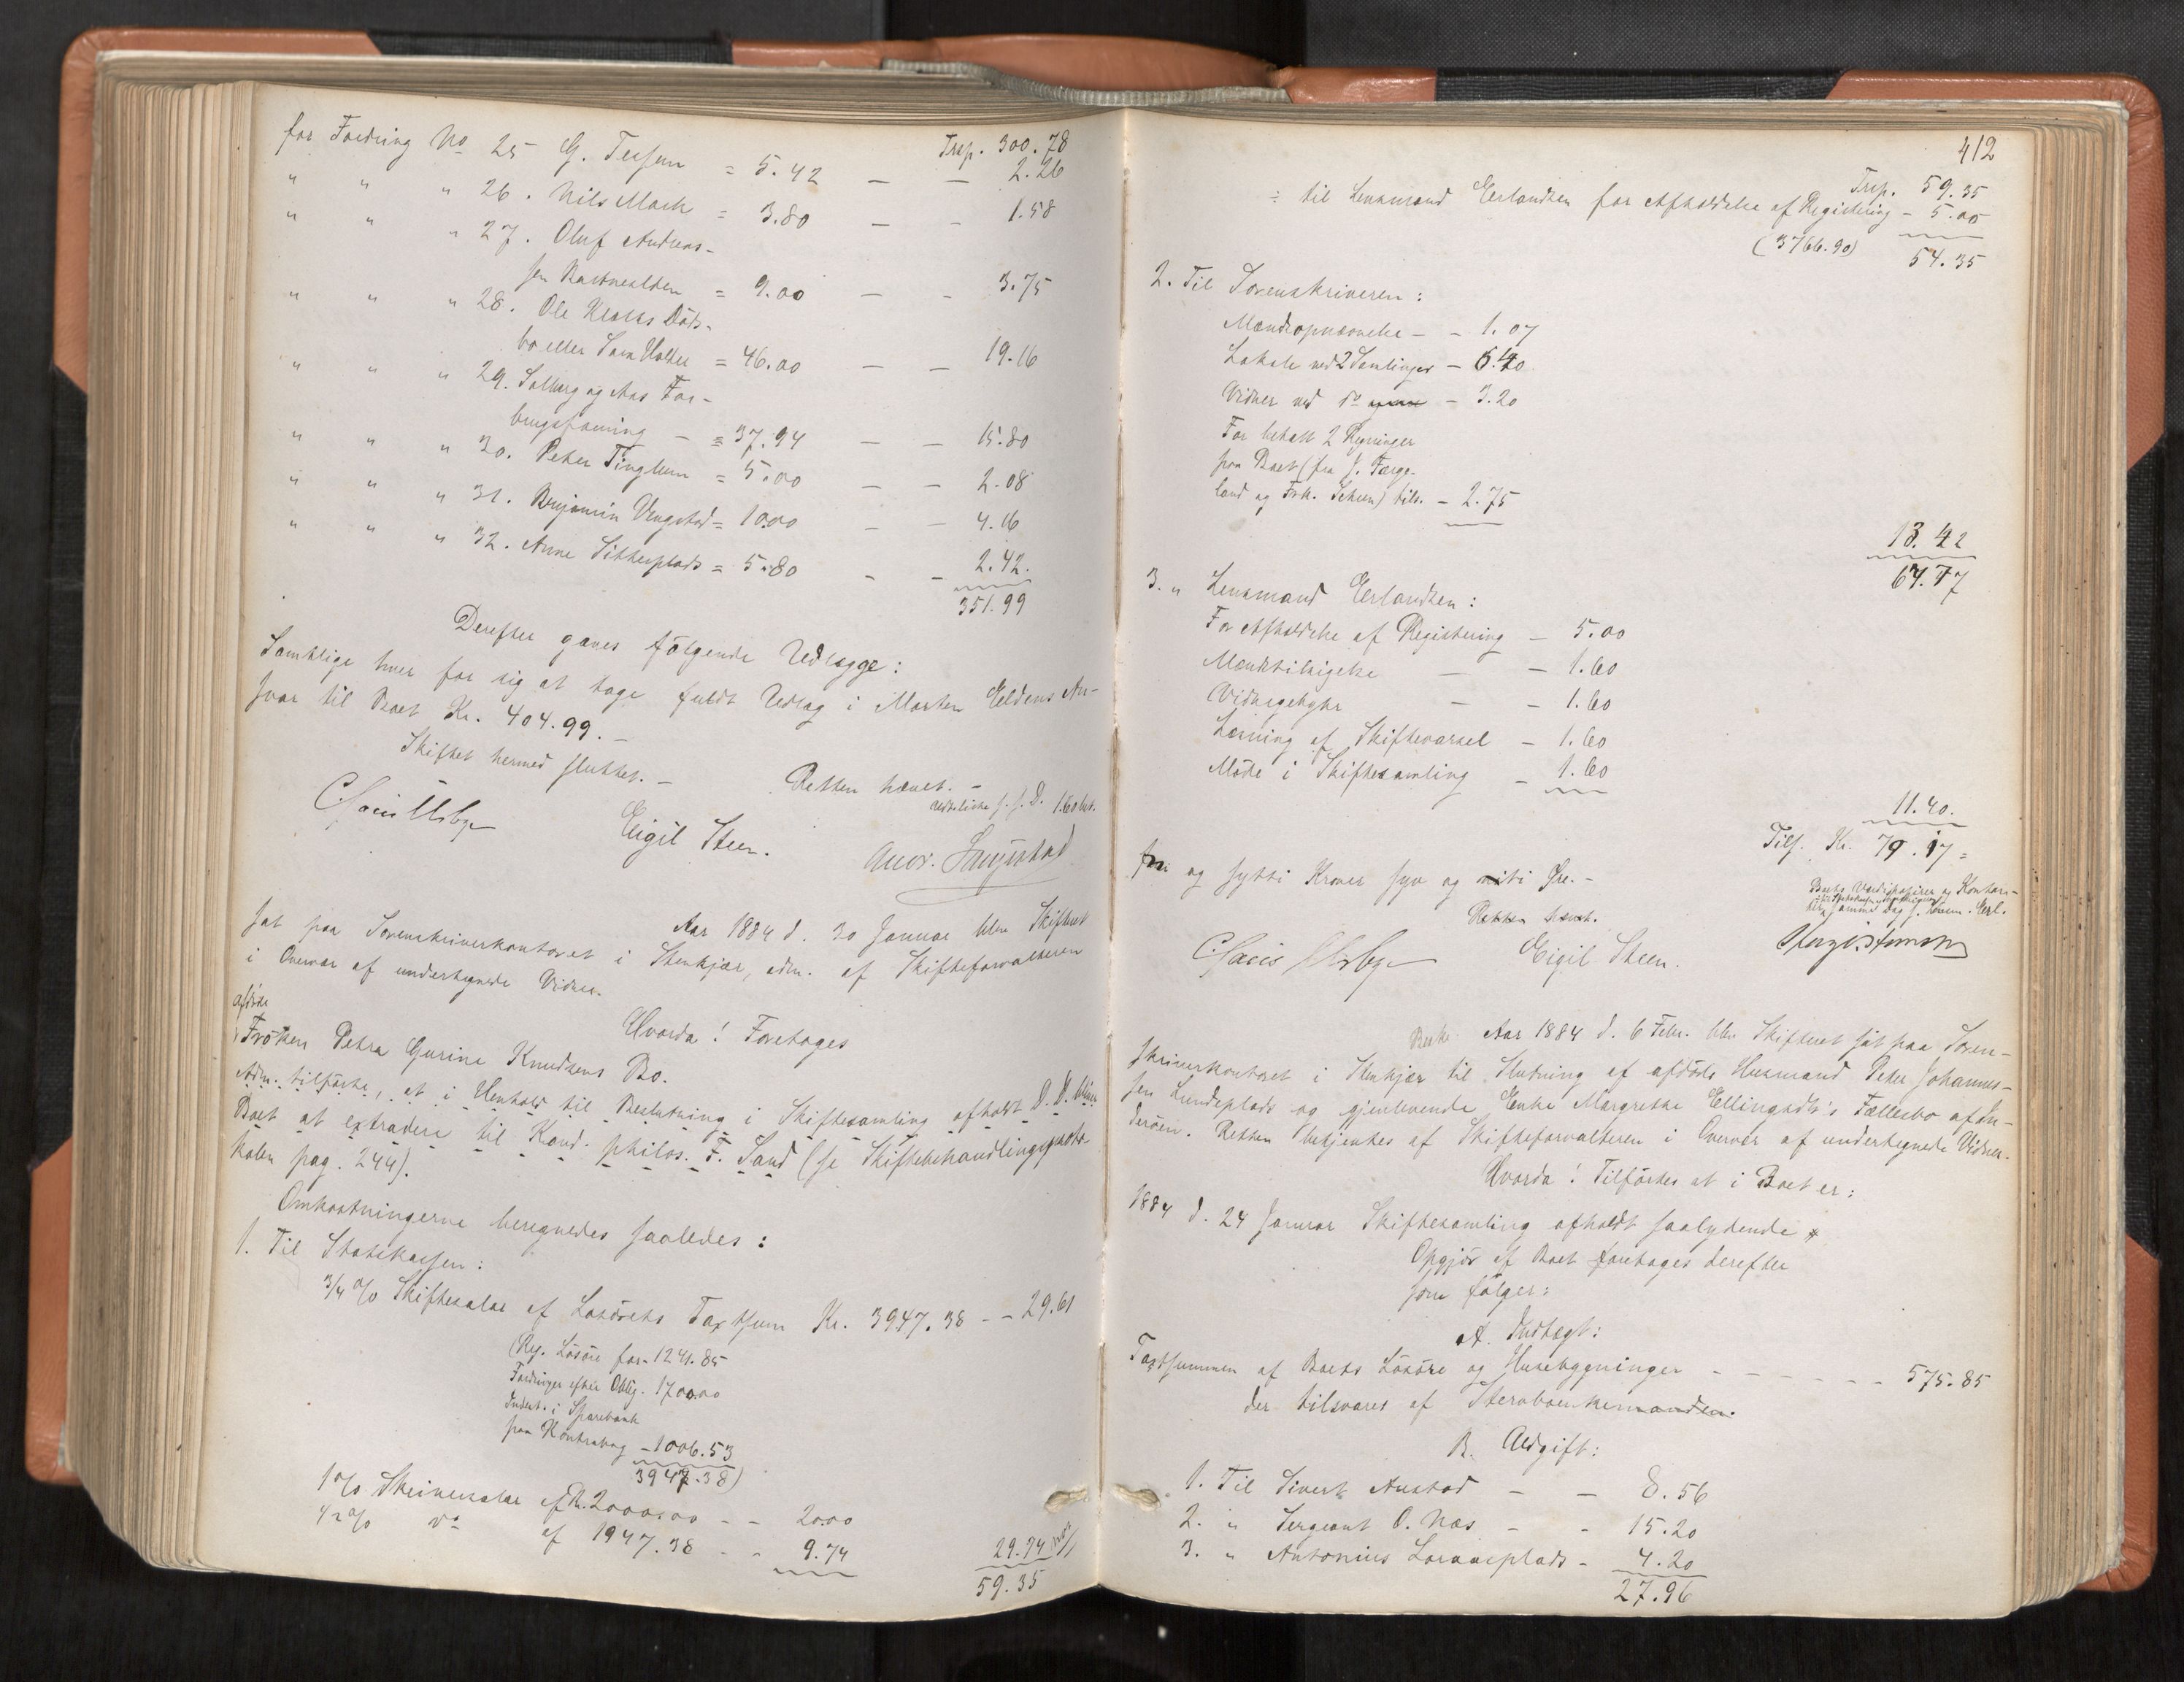 Trsp. 300.78
for Fordring No 25 G. Tessem = 5.42 — — 2.26
" " " 26. Nils Mork = 3.80 — — 1.58
" " " 27. Oluf Andreas-
sen = 9.00 — — 3.75
" " " 28. Ole Döds-
bo eller = 46.00 — — 19.16
" " " 29. og Aas For-
brugsforening — = 37.94 — — 15.80
" " " 30. Peter Tinglum = 5.00 — — 2.08
" " " 31. Benjamin Vengstad = 10.00 — — 4.16
" " " 32. Anne Sitterplads = 5.80 — — 2.42.
351.99
Derefter gaves følgende Udlægge:
Samtlige hver for sig at tage fuldt Udlag i Morten Eeldens An-
svar til Boet Kr. 404.99. —
Skiftet hermed sluttet. —
Retten hævet. —
Eigil Steen.
Aar 1884 d. 30 Januar blev Skifteret
sat paa Sorenskriverkontoret i Stenkjær, adm. af Skifteforvalteren
i Overvær af undertegnede Vidner.
Hvorda! Foretoges
afdøde
Frøken Petra Gurine Knudsens Bo.
Adm. tilførte, at i Henhold til Beslutning i Skiftesamling afholdt D. D. bliver
Boet at extradere til Kand. philos. F. Sand (se Skiftebehandlingsproto-
kolen pag. 244).
Omkostningerne beregnedes saaledes:
1. Til Statskassen:
3/4 % Skiftesalær af Løsørets Taxtsum Kr. 3947.38 — — 29.61
(Reg. Løsøre for - 1241.85
Fordringer efter Oblig. 1700.00
Indest. i Sparebank
paa Kontrabog — 1006.53
3947.38)
1 % Skriversalær af Kr. 2000.00 — — 20.00
1/2 % do af 1947.38 — — 9.74
29.74
59.35
412
Trsp. 59.35
÷ til Lensmand Eerlandsen for Afholdelse af Registering — 5.00
(3766.90) 54.35
2. Til Sorenskriveren:
Mandsopnævnelse — — 1.07
Lokale ved 2 Samlinger — 6.40
Vidner ved do — 3.20
For betalt 2 Regninger
paa Boet (fra J. Færge-
land og Frk. ) tils. — 2.75
13.42
67.77
3. " Lensmand Eerlandsen:
For Afholdelse af Registering — 5.00
Mandstilsigelse — — 1.60
Vidnegebyhr — — 1.60
Læsning af Skiftevarsel — 1.60
Møde i Skiftesamling — 1.60
11.40.
Tils. Kr. 79.17 =
og sytti Kroner syv og ti Øre. —
Retten hævet.
Eigil Steen.
Aar 1884 d. 6 Febr. blev Skifteret sat paa Soren-
skriverkontoret i Stenkjær til Slutning af afdøde Husmand Peter Johannes-
sen Lundeplads og gjenlevende Enke Margrethe Ellingsdtr's Fællesbo af In-
derøen. Retten betjentes af Skifteforvalteren i Overvær af undertegnede Vidner.
Hvorda! Tilførtes at i Boet er:
1884 d. 24 Januar Skiftesamling afholdt saalydende
Opgjør af Boet foretoges derefter
som følger:
A. Indtægt:
Taxtsummen af Boets Løsøre og Husebygninger — — — — — — 575.85
der tilsvares af
B. Udgift:
1. Til Sivert Austad — — 8.56
2. " Sergeant O. Næs — — 15.20
3. " Antonius — 4.20
27.96